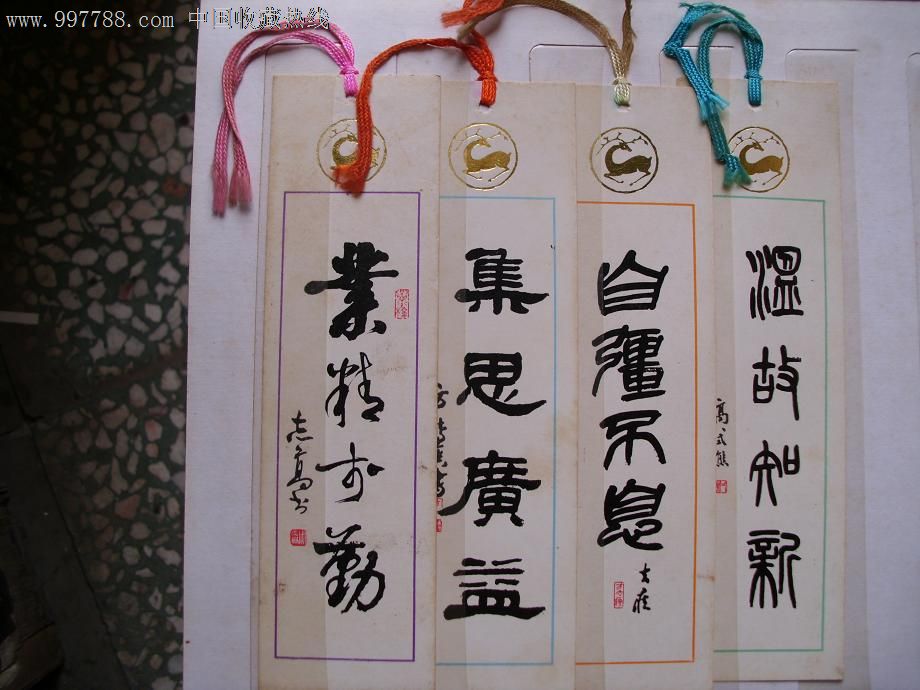 www.997788.com 中国收藏热线
業精於勤
集思廣益
自彊不息
温故知新
高式熊